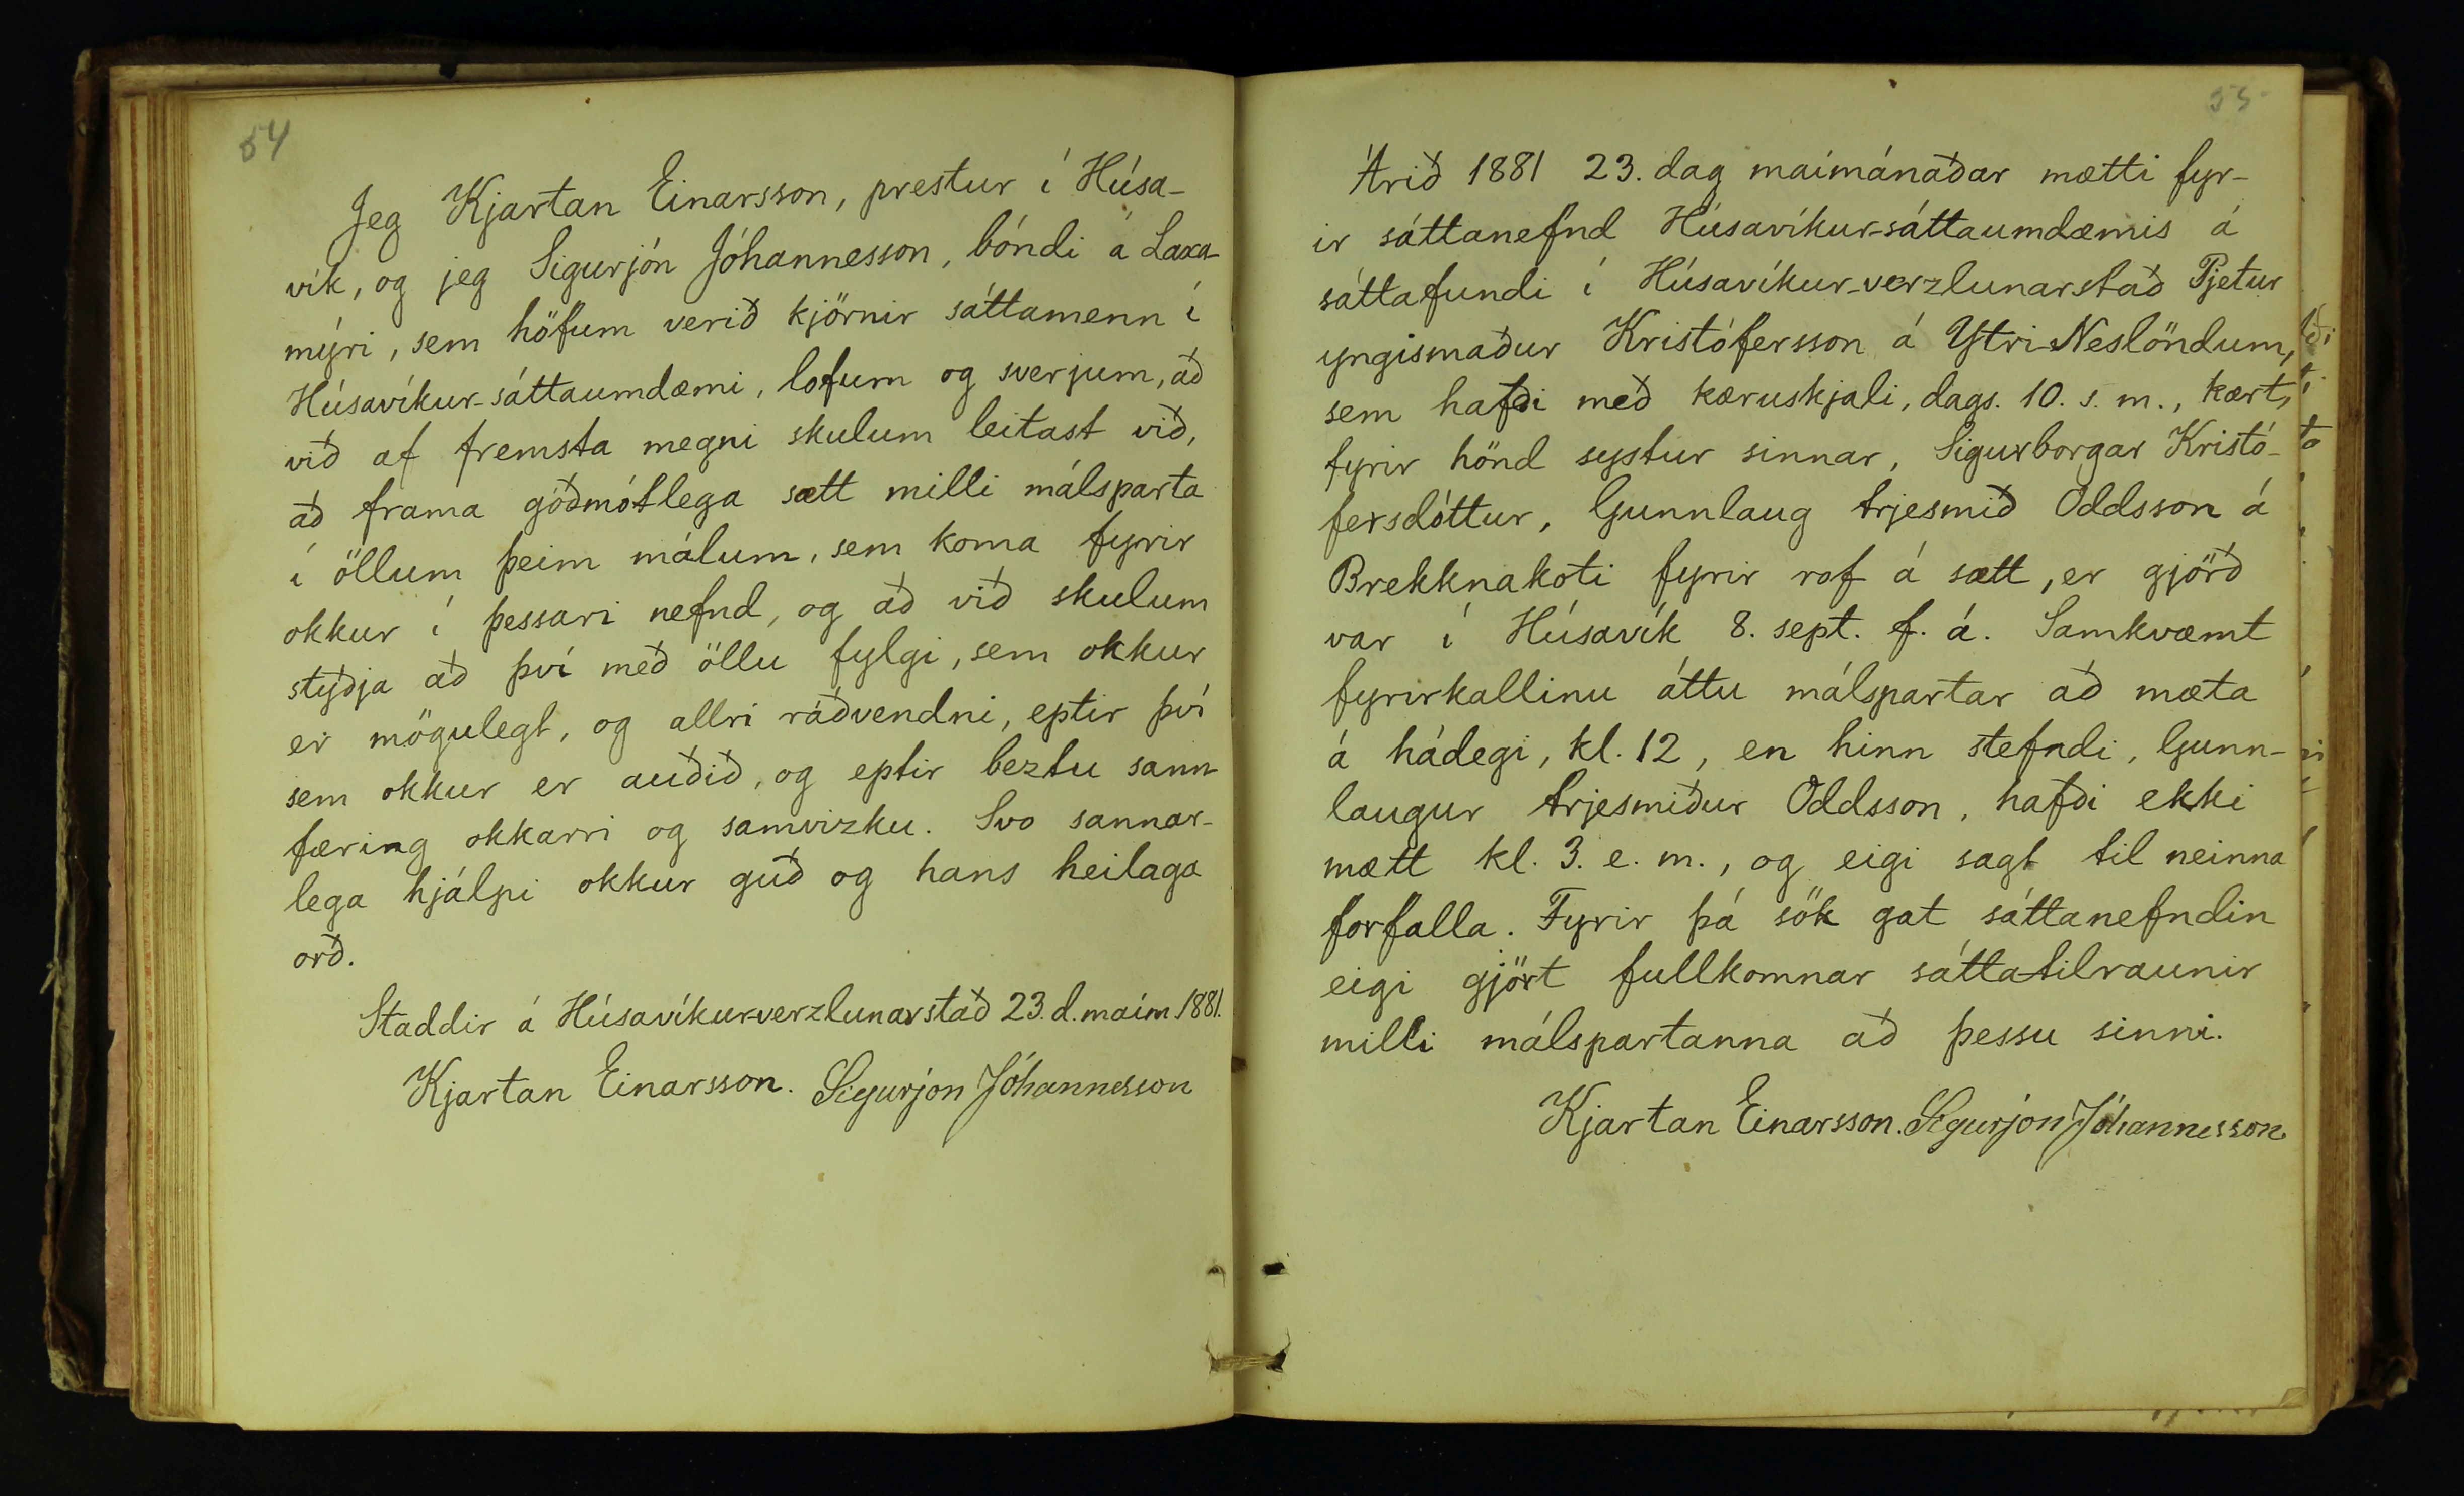 54
Jeg Kjartan Einarsson, prestur í Húsa-
vík, og jeg Sigurjón Jóhannesson, bóndi á Laxa-
mýri, sem höfum verið kjörnir sáttamenn í
Húsavíkur-sáttaumdæmi, lofum og sverjum, að
við af fremsta megni skulum leitast við,
að frama góðmótlega sætt milli málsparta
í öllum þeim málum, sem koma fyrir
okkur í þessari nefnd, og að við skulum
styðja að því með öllu fylgi, sem okkur
er mögulegt, og allri ráðvendni, eptir því
sem okkur er auðið, og eptir beztu sann-
færing okkarri og samvizku. Svo sannar-
lega hjálpi okkur guð og hans heilaga
orð.
Staddir á Húsavíkur-verzlunarstað 23. d. maím 1881.
Kjartan Einarsson. Sigurjon Jóhannesson
55
Árið 1881 23. dag maímánaðar mætti fyr-
ir sáttanefnd Húsavíkur-sáttaumdæmis á
sáttafundi í Húsavíkur-verzlunarstað Pjetur
yngismaður Kristófersson á Ytri-Neslöndum,
sem hafði með kæruskjali, dags. 10. s. m., kært,
fyrir hönd systur sinnar, Sigurborgar Kristó-
fersdóttur, Gunnlaug trjesmið Oddsson á
Brekknakoti fyrir rof á sætt, er gjörð
var í Húsavík 8. sept. f. á. Samkvæmt
fyrirkallinu áttu málspartar að mæta
á hádegi, kl. 12, en hinn stefndi, Gunn-
laugur trjesmiður Oddsson, hafði ekki
mætt kl. 3. e. m., og eigi sagt til neinna
forfalla. Fyrir þá sök gat sáttanefndin
eigi gjört fullkomnar sáttatilraunir
milli málspartanna að þessu sinni.
Kjartan Einarsson. Sigurjón Jóhannesson